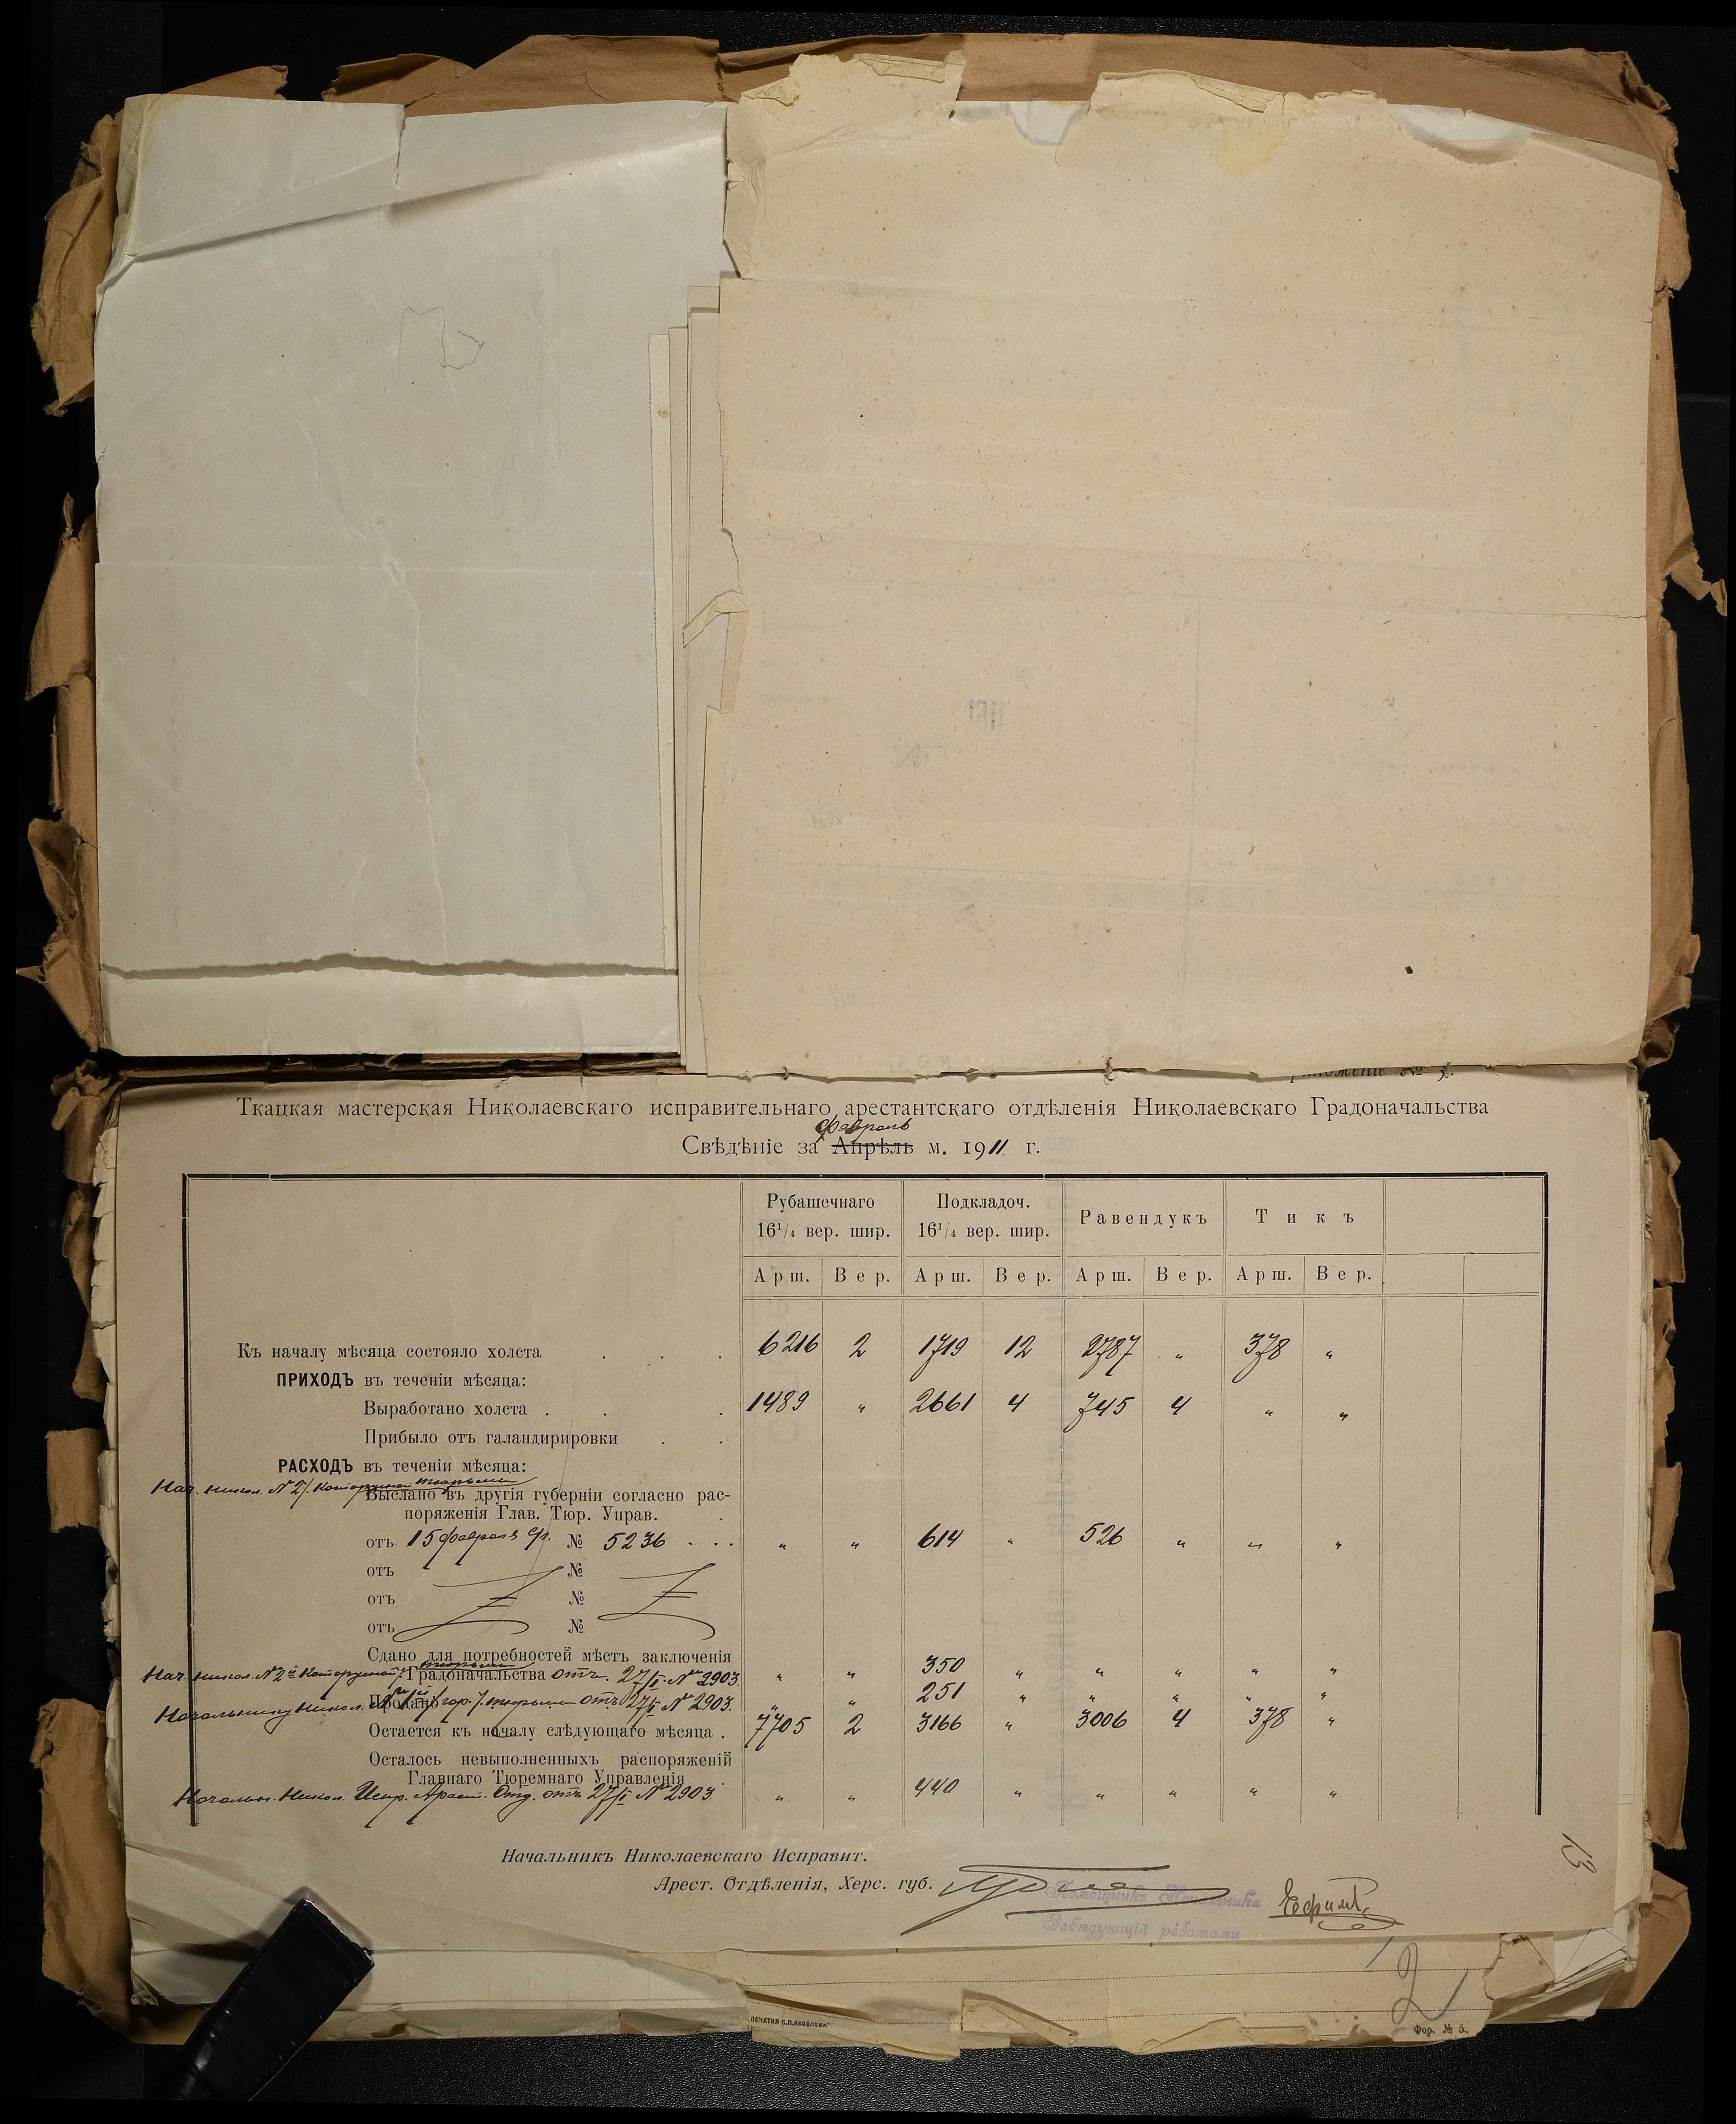 риложеніе № 5.
Ткацкая мастерская Николаевскаго исправительнаго арестантскаго отдѣленія Николаевскаго Градоначальства
февраль
Свѣдѣніе за Апрѣль м. 1911 г.
Рубашечнаго 16¹/₄ вер. шир. Подкладоч. 16¹/₄ вер. шир. Равендукъ Тикъ
Арш. Вер. Арш. Вер. Арш. Вер. Арш. Вер.
Къ началу мѣсяца состояло холста . . . 6216 2 1719 12 2787 „ 378 „
ПРИХОДЪ въ теченіи мѣсяца:
Выработано холста . . . 1489 „ 2661 4 745 4 „ „
Прибыло отъ галандирировки . .
РАСХОДЪ въ теченіи мѣсяца:
Нач. Никол. № 2 / Каторжной тюрьмы
Выслано въ другія губерніи согласно рас-
поряженія Глав. Тюр. Управ. .
отъ 15 февраля № 5236 . . . „ „ 614 „ 526 „ „ „
отъ №
отъ №
отъ №
Сдано для потребностей мѣстъ заключенія
Нач. Никол. № 2й Каторжной тюрьмы Градоначальства отъ 27/II № 2903. „ „ 350 „ „ „ „ „
Начальнику Никол. Продано гор. тюрьмы отъ 27/II № 2903. „ „ 251 „ „ „ „ „
Остается къ началу слѣдующаго мѣсяца . 7705 2 3166 „ 3006 4 378 „
Осталось невыполненныхъ распоряженій
Главнаго Тюремнаго Управленія .
Начальн. Никол. Испр. Арест. Отд. отъ 27/II № 2903. „ „ 440 „ „ „ „ „
Начальникъ Николаевскаго Исправит.
Арест. Отдѣленія, Херс. губ.
Помощникъ Начальника
Завѣдующій работами
13
2
ПЕЧАТНЯ С.П.ЯКОВЛЕВА"
Фор. № 5.